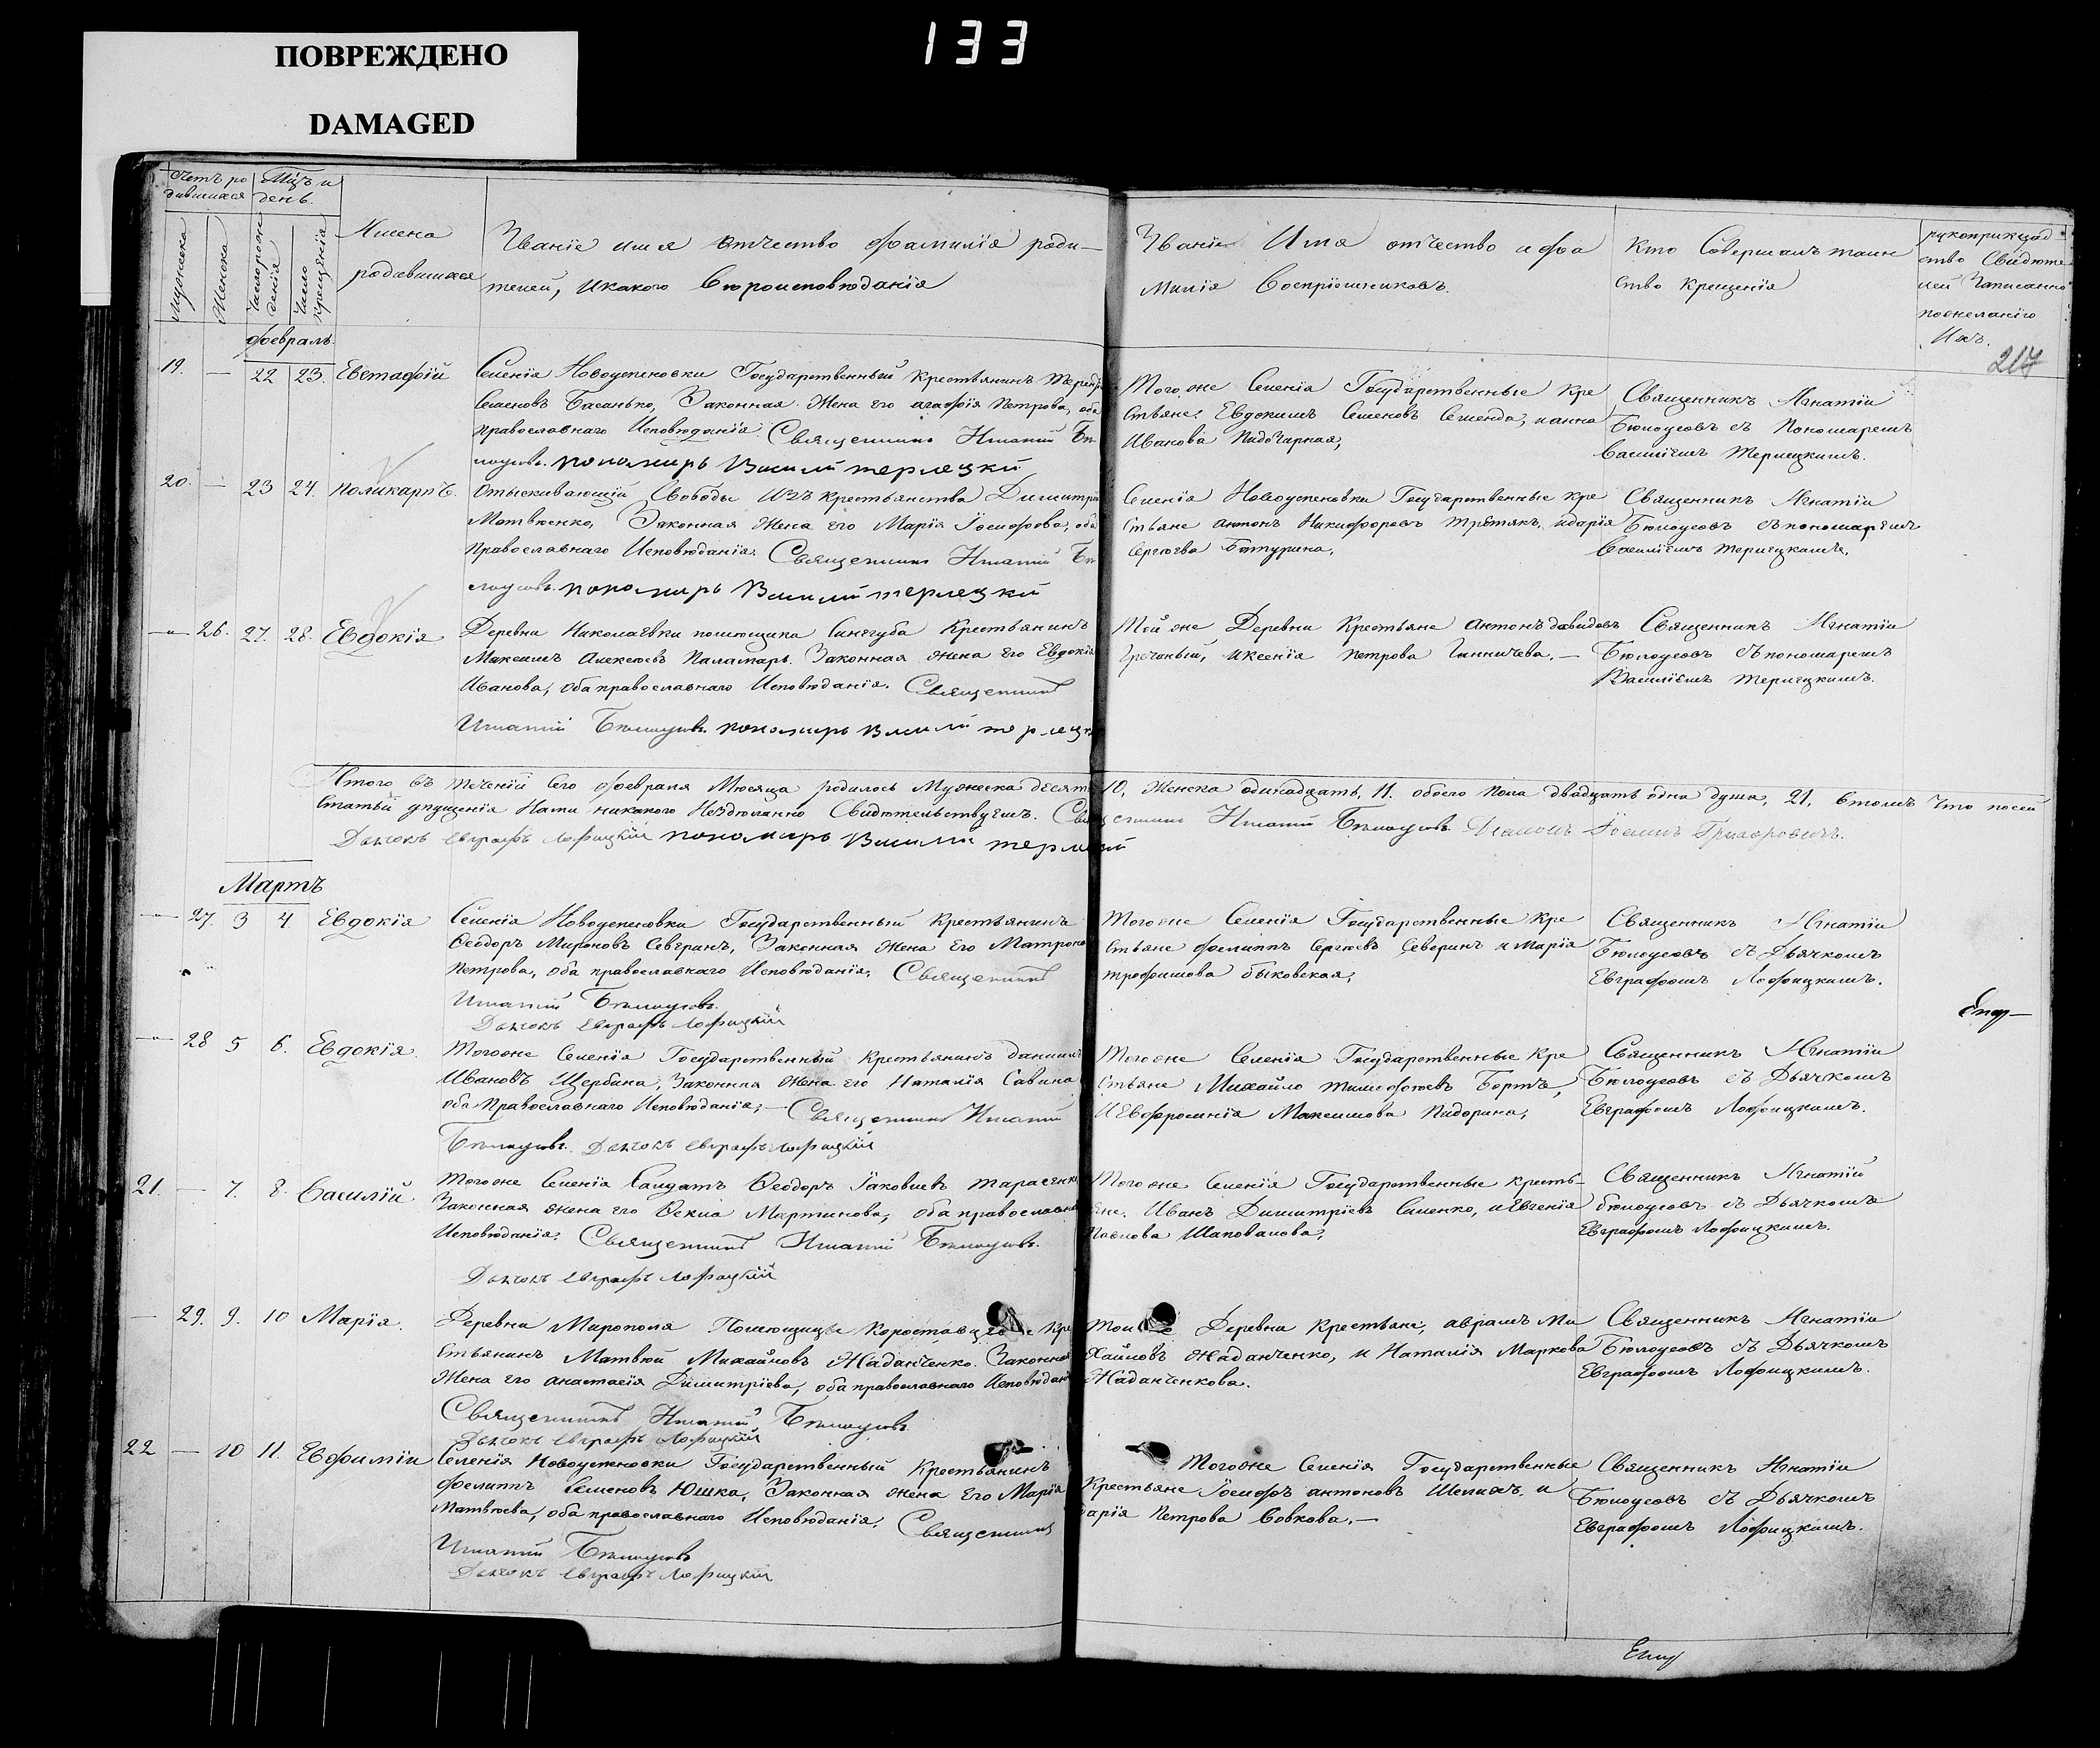 ПОВРЕЖДЕНО
DAMAGED
133
Счетъ ро
дившихся
Мужеска
Женска
Мцъ и
день.
Число рож
денія
Число
крещенія
Имена
родившихся
Званіе имя отчество фамилія роди—
телей, и какого вѣроисповѣданія
Званіе Имя отчество и фа
милія Воспріемниковъ.
Кто Совершалъ таин
ство Крещенія
рукоприклад
ство Свидѣте
лей Записанно
пожеланію
Ихъ.
217
Февраль.
19. — 22 23. Евстафій
Селенія Новоуспеновки Государственный крестьянинъ
Семеновъ Басанько, Законная Жена его агафія Петрова, оба
православнаго Исповѣданія. Священникъ Игнатій Бѣ
лоусовъ. пономарь Василій терлецкій
Того же Селенія Государственные Кре
стьяне. Евдокимъ Семеновъ Семенда, и анна
Иванова Подгарная,
Священникъ Игнатіи
Бѣлоусовъ съ Пономаремъ
Василіемъ Терлецкимъ.
20. — 23 24. Поликарпъ.
Отыскивающій Свободы Изъ крестьянства Димитрій
Матвѣенко, Законная Жена его Марія Іосифова, оба
Православнаго Исповѣданія. Священникъ Игнатій Бѣ
лоусовъ. пономарь Василій терлецкій
Селенія Новоуспеновки Государственные кре
стьяне антонъ Никифоровъ Третякъ, и дарія
Сергѣева Батурина,
Священникъ Игнатіи
Бѣлоусовъ съ пономаремъ
Василіемъ терлецкимъ,
— 26. 27. 28. Евдокія
Деревни Николаевки помѣщика Синегуба Крестьянинъ
Максимъ Алексѣевъ Паламарь. Законная жена его Евдокія
Иванова, оба православнаго Исповѣданія. Священникъ
Игнатій Бѣлоусовъ. пономарь Василій терлецк
Той же Деревни Крестьяне антонъ давидовъ
Гречаный, и ксенія петрова Гинничева. —
Священникъ Игнатіи
Бѣлоусовъ съ пономаремъ
Василіемъ терлецкимъ.
Итого въ теченіи сего февраля Мѣсяца родилось Мужеска десять 10, Женска одинадцать, 11. обоего пола двадцать одна душа, 21, Втомъ что посей
Статьи упущенія Нами никакого Нездѣланно Свидѣтельствуемъ. Священникъ Игнатій Бѣлоусовъ Діаконъ Іоаннъ Григоровичъ.
Дьячокъ Евграфъ Лофицкій пономарь Василій терлецкій
Мартъ
— 27. 3 4. Евдокія
Селенія Новоуспеновки Государственный Крестьянинъ
Ѳеодоръ Мироновъ Севгринъ, Законная Жена Его Матрона
Петрова, оба православнаго Исповѣданія, Священникъ
Игнатій Бѣлоусовъ.
Дьячокъ Евграфъ Лофицкій
Того же Селенія Государственные Кре
стьяне филиппъ Сергѣевъ Северинъ и Марія
трофимова быковская,
Священникъ Игнатіи
Бѣлоусовъ съ Дьячкомъ
Евграфомъ Лофицкимъ.
— 28 5 6. Евдокія.
Того же Селенія Государственный Крестьянинъ данiилъ
Ивановъ Щербина, Законная Жена его Наталія Савина
оба Православнаго Исповѣданія, — Священникъ Игнатій
Бѣлоусовъ. Дьячокъ Евграфъ Лофицкій
Того же Селенія Государственные Кре
стьяне Михайло тимофѣевъ Бортъ,
И Евфросинія Максимова Пидорина,
Священникъ Игнатіи
Бѣлоусовъ съ Дьячкомъ
Евграфомъ Лофицкимъ.
21. — 7. 8. Василій.
Того же Селенія Салдатъ Ѳеодоръ Іаковлевъ тарасенко
Законная жена его Ѳекла Мартинова, оба православнаго
Исповѣданія. Священникъ Игнатій Бѣлоусовъ.
Дьячокъ Евграфъ Лофицкій
Того же Селенія Государственные кресть—
яне. Иванъ Димитріевъ Сименко, и Евгенія
Павлова Шаповалова,
Священникъ Игнатій
бѣлоусовъ съ Дьячкомъ
Евграфомъ Лофицкимъ.
— 29. 9. 10 Марія.
Деревни Мирополя Помѣщицы Кре
стьянинъ Матвѣй Михайловъ Жаданченко. Законная
Жена его анастасія Димитріева, оба православнаго Исповѣданія
Священникъ Игнатій Бѣлоусовъ
Дьячокъ Евграфъ Лофицкій
Той же Деревни Крестьяне, аврамъ Ми
хайловъ Жаданченко, и Наталія Маркова
Жаданченкова.
Священникъ Игнатіи
Бѣлоусовъ съ Дьячкомъ
Евграфомъ Лофицкимъ.
22 — 10 11. Евфимій
Селенія Новоуспеновки Государственный Крестьянинъ
филиппъ Семеновъ Юшка, Законная жена Его Марія
Матвѣева, оба православнаго Исповѣданія. Священникъ
Игнатій Бѣлоусовъ
Дьячокъ Евграфъ Лофицкій
Того же Селенія Государственные
Крестьяне Іосифъ антоновъ Шелихъ, и
дарія Петрова Вовкова. —
Священникъ Игнатіи
Бѣлоусовъ съ Дьячкомъ
Евграфомъ Лофицкимъ.